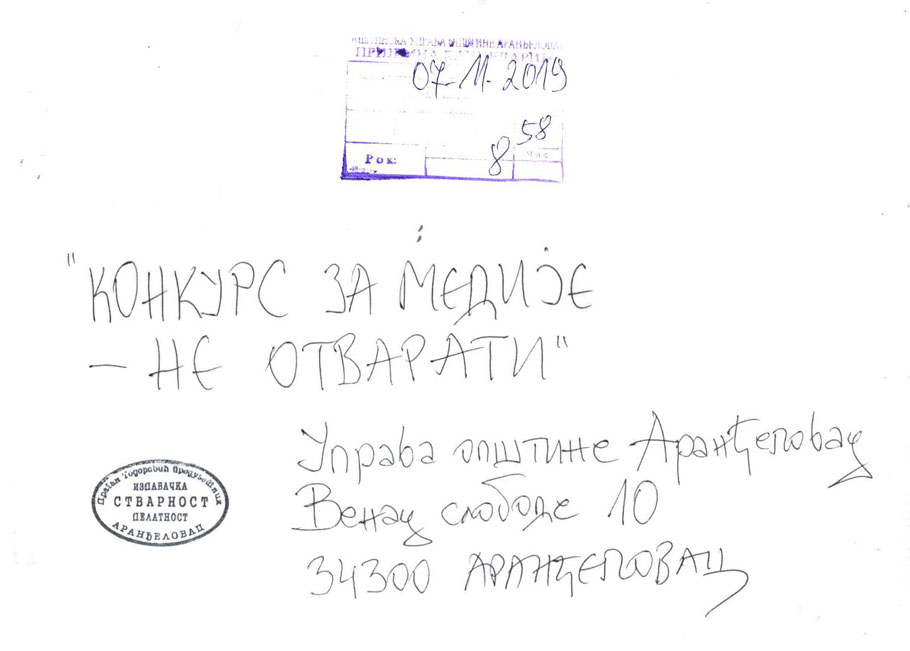 УПРАВА ОПШТИНЕ АРАНЂЕЛОВАЦ
07-11-2019
8 58
Рок:
час
"КОНКУРС ЗА МЕДИЈЕ
– НЕ ОТВАРАТИ"
Управа општине Аранђеловац
Венац слободе 10
34300 АРАНЂЕЛОВАЦ
Драган Тодоровић Предузетник
ИЗДАВАЧКА
СТВАРНОСТ
ДЕЛАТНОСТ
АРАНЂЕЛОВАЦ